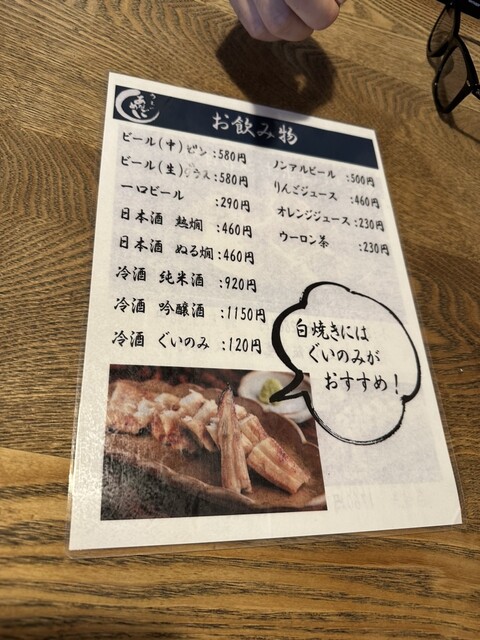 お飲み物
ビール(中)ビン:580円
ビール(生)グラス:580円
一口ビール :290円
日本酒 熱燗 :460円
日本酒 ぬる燗:460円
冷酒 純米酒 :920円
冷酒 吟醸酒 :1150円
冷酒 ぐいのみ :120円
ノンアルビール :500円
りんごジュース :460円
オレンジジュース:230円
ウーロン茶 :230円
白焼きには
ぐいのみが
おすすめ!